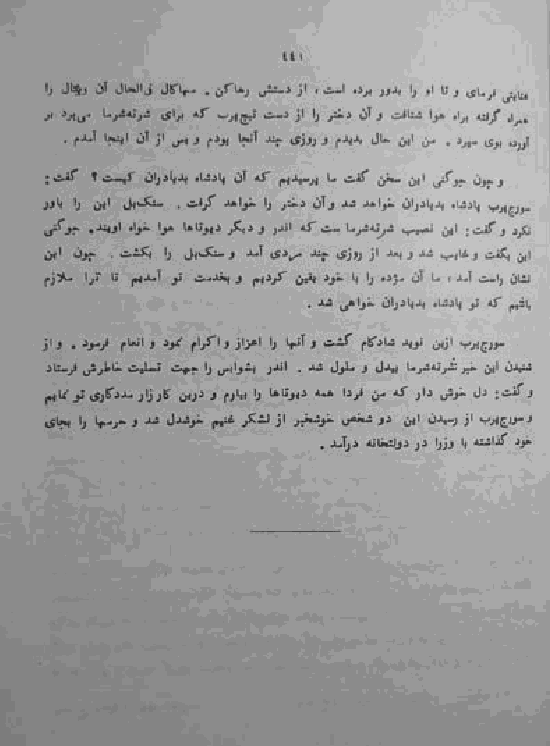 ۴۴۱
عنایتی فرمای و تا او را بدور برده است، از دستش رهاکن. مهاکال فی‌الحال آن را
همراه گرفته براه هوا شتافت و آن دختر را از دست که برای می‌برد بر
آورده بوی سپرد. من این حال بدیدم و روزی چند آنجا بودم و پس از آن اینجا آمدم.
و چون جوگنی این سخن گفت ما پرسیدیم که آن پادشاه بدیادران کیست؟ گفت:
سورج‌پرب پادشاه بدیادران خواهد شد و آن دختر را خواهد گرفت. این را باور
نکرد و گفت: این نصیب شرته‌شرما ست که اندر و دیگر دیوتاها هوا خواه اویند. جوگنی
این بگفت و غایب شد و بعد از روزی چند مردی آمد و را بکشت. چون این
نشان راست آمد، ما آن مژده را با خود یقین کردیم و بخدمت تو آمدیم تا ترا ملازم
باشیم که تو پادشاه بدیادران خواهی شد.
سورج‌پرب ازین نوید شادکام گشت و آنها را اعزاز و اکرام نمود و انعام فرمود. و از
شنیدن این خبر شرته‌شرما بیدل و ملول شد. اندر بشواسن را جهت تسلیت خاطرش فرستاد
و گفت: دل خوش دار که من فردا همه دیوتاها را بیارم و درین کارزار مددکاری تو نمایم
و سورج‌پرب از رسیدن این دو شخص خوشخبر از لشکر غنیم خوشدل شد و حرمها را بجای
خود گذاشته با وزرا در دولتخانه درآمد.